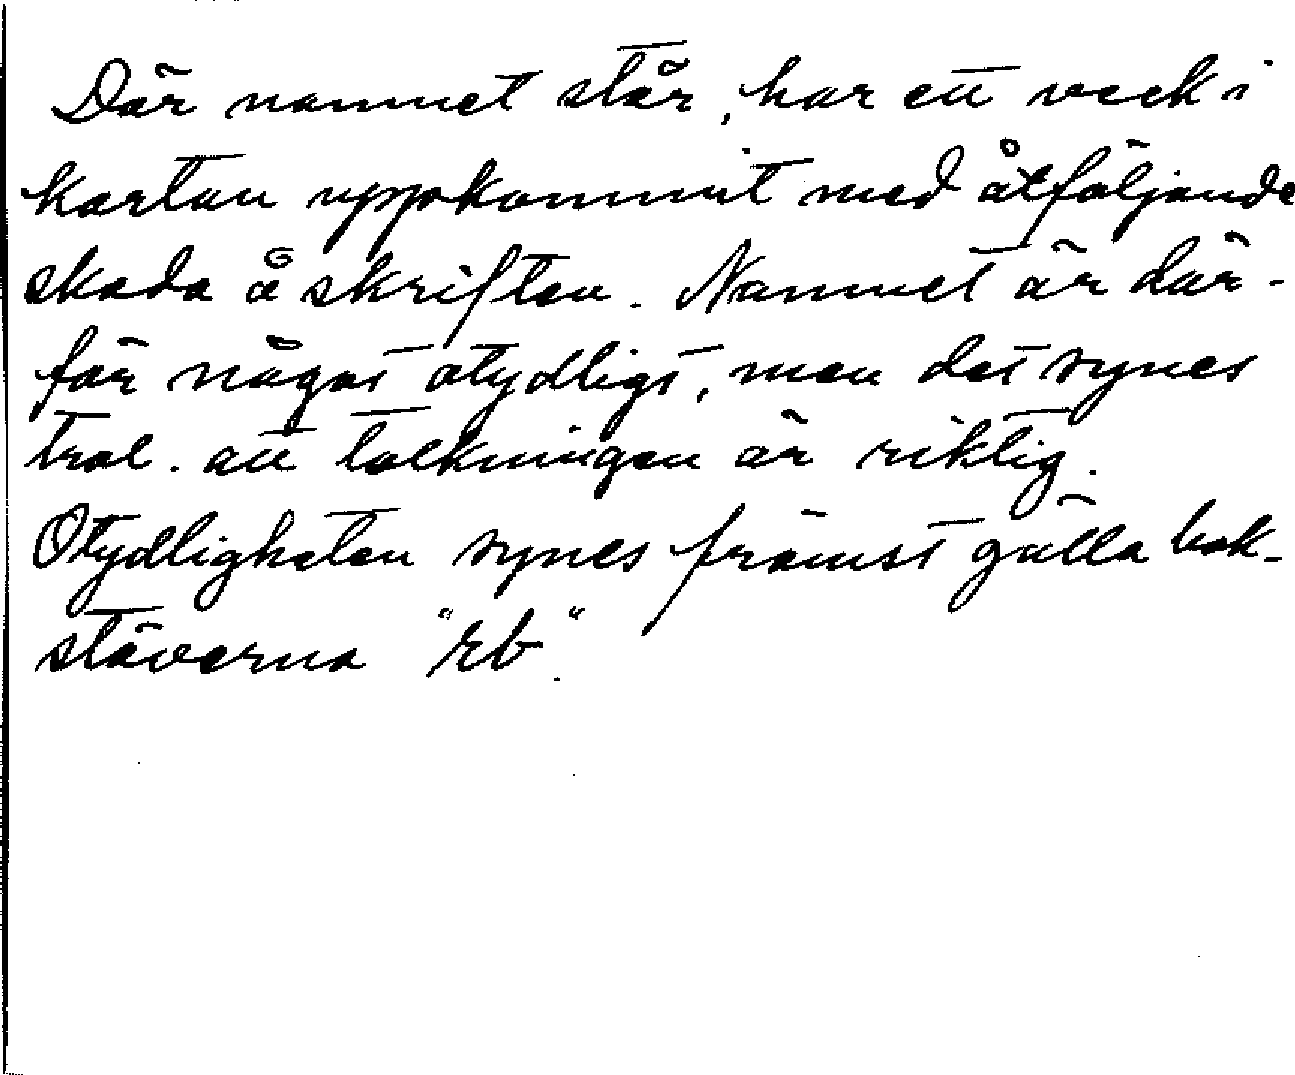 Där namnet står, har ett veck i
kartan uppkommit med åtföljande
skada å skriften. Namnet är där-
för något otydligt, men det synes
trol. att tolkningen är riktig.
Otydligheten synes främst gälla bok-
stäverna "rb".